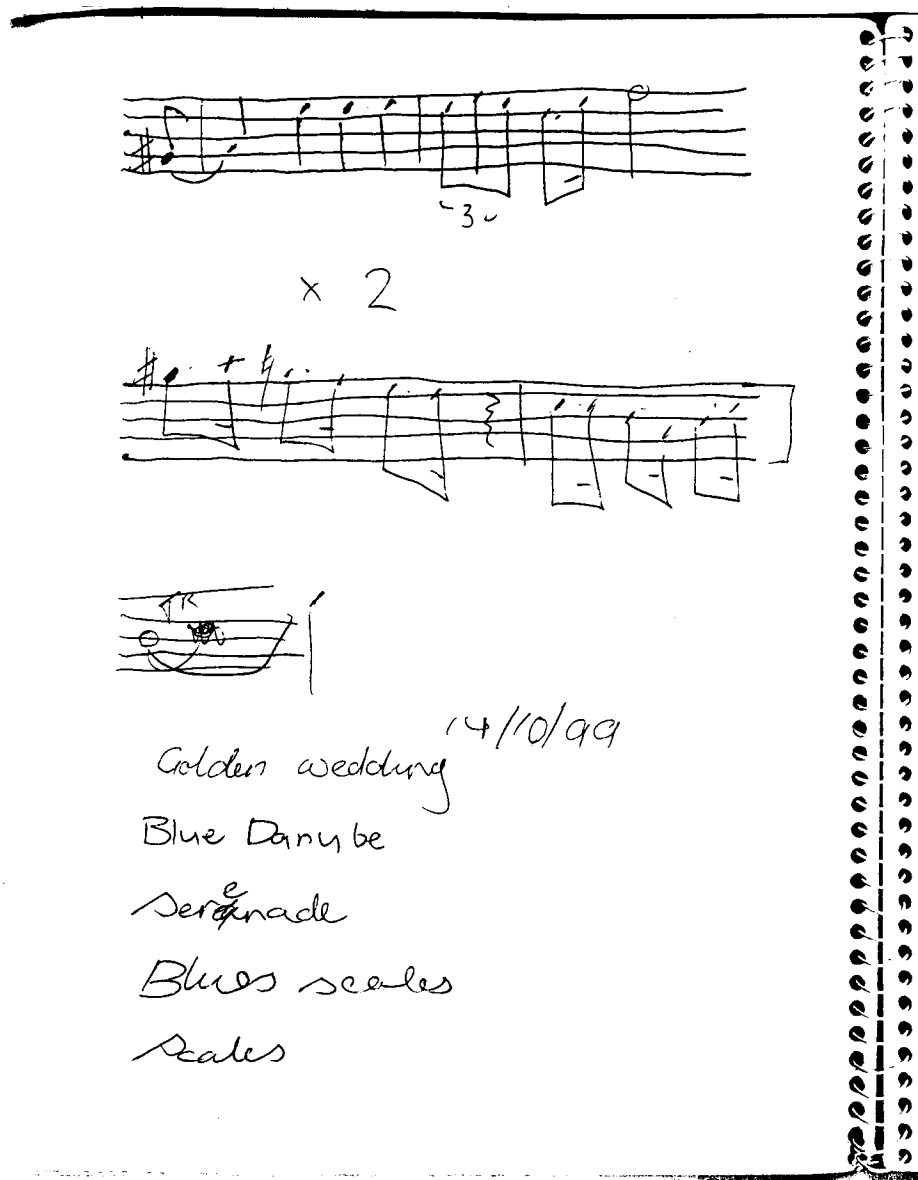 3
x 2
TR
14/10/99
Golden wedding
Blue Danube
Serenade
Blues scales
Scales